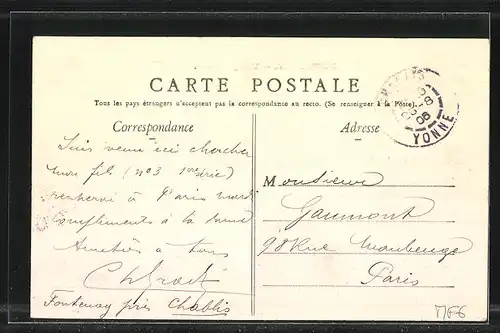 CARTE POSTALE
Tous les pays étrangers n'acceptent pas la correspondance au recto. (Se renseigner à la Poste).
Correspondance
Adresse
YONNE
Suis venu ici chercher
mon fils (no3 1ère série)
à Paris mardi
compliments à la
Amitiés à tous
Fontenay près Chablis
Monsieur
Gaumont
98 Rue Maubeuge
Paris